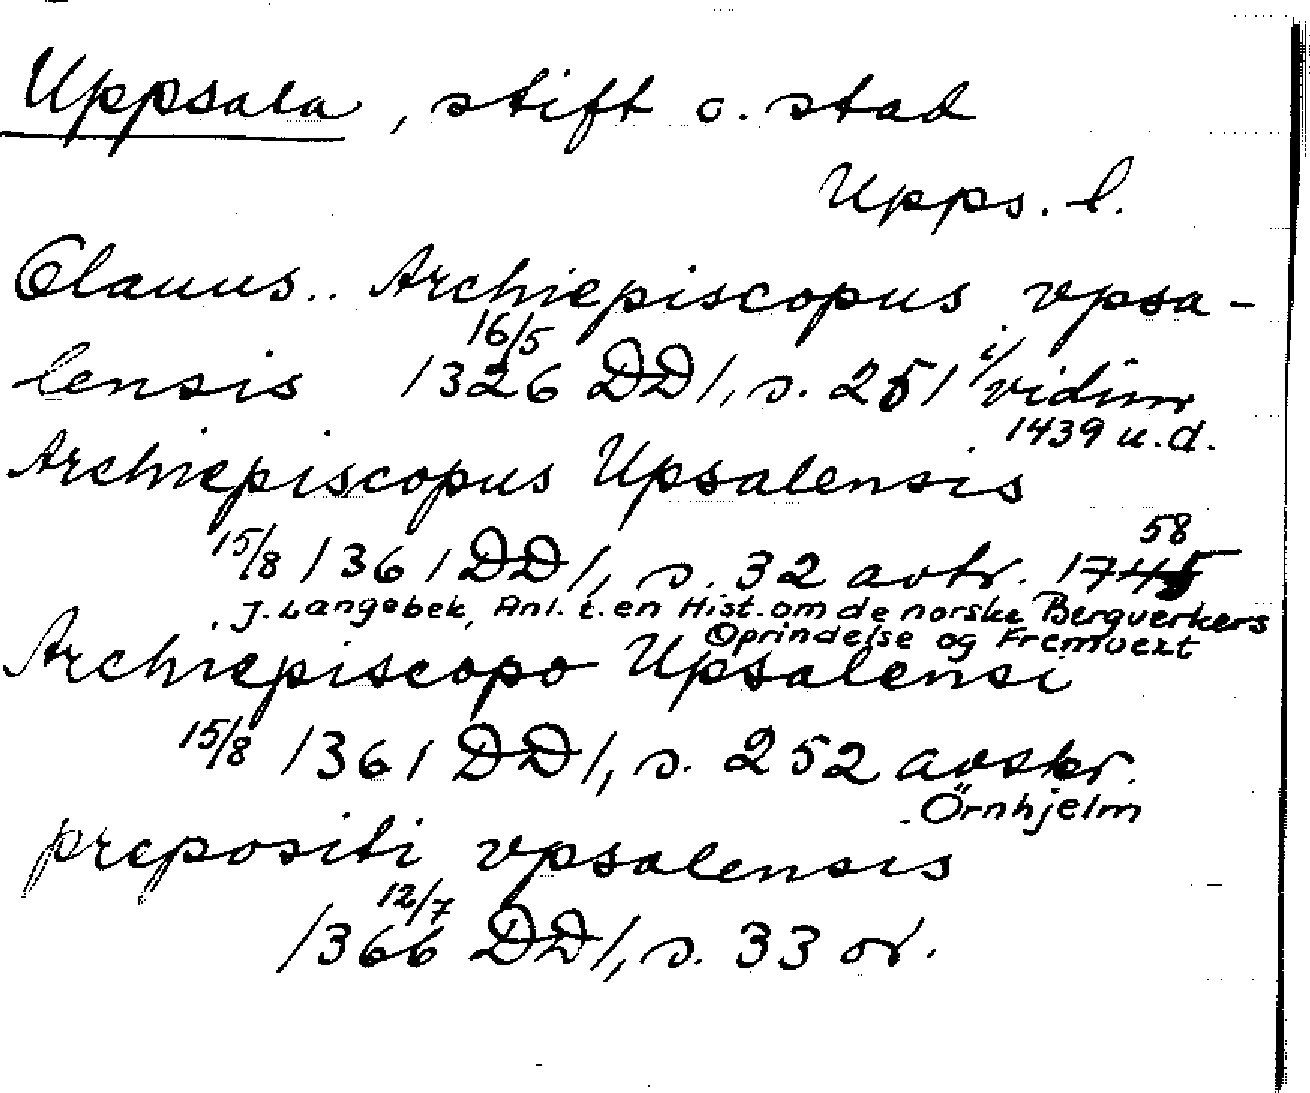 Uppsala, stift o. stad
Upps. l.
Olauus.. Archiepiscopus vpsa-
lensis 16/5 1326 DD1, s. 251 i/ vidim
1439 u.d.
Archiepiscopus Upsalensis
15/8 1361 DD1, s. 32 avtr. 1745 58
J. Langebek, Anl. t. en Hist. om de norske Bergverkers
Oprindelse og Fremvext
Archiepiscopo Upsalensi
15/8 1361 DD1, s. 252 avskr.
Örnhjelm
prepositi vpsalensis
12/7
1366 DD1, s. 33 or.